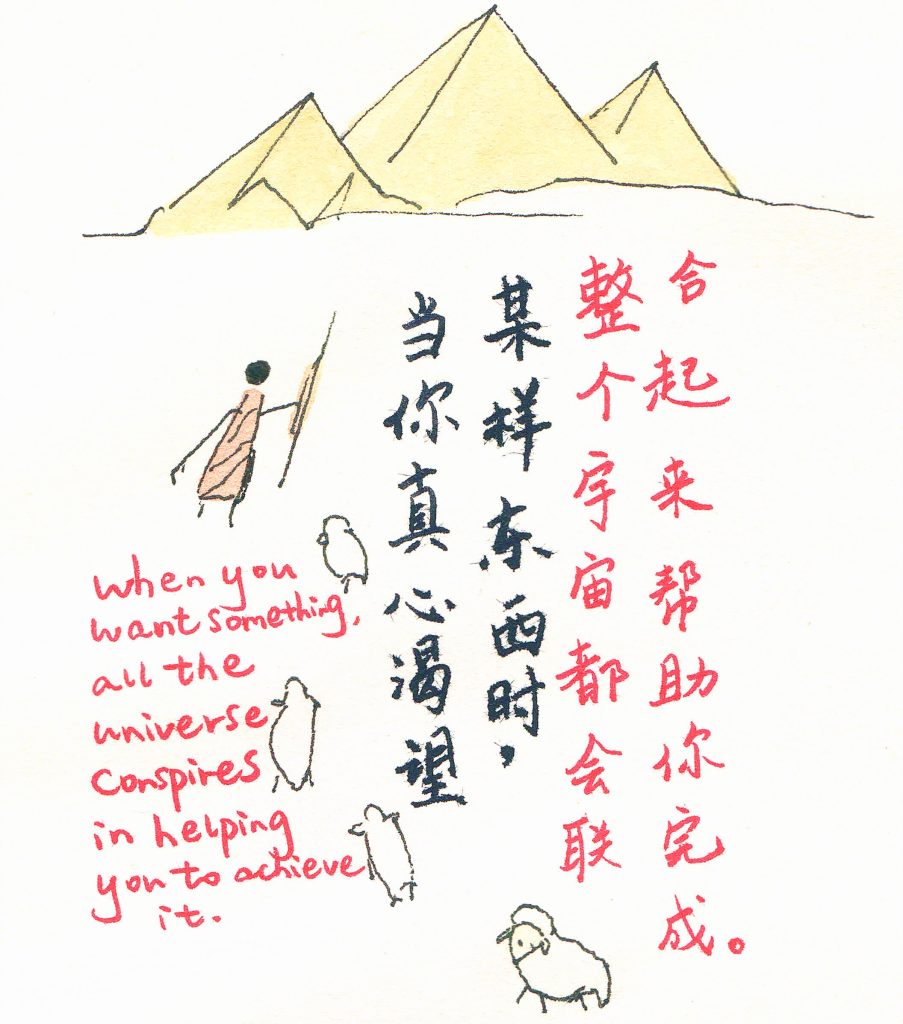 当你真心渴望
某样东西时，
整个宇宙都会联
合起来帮助你完成。
when you
want something,
all the
universe
conspires
in helping
you to achieve
it.